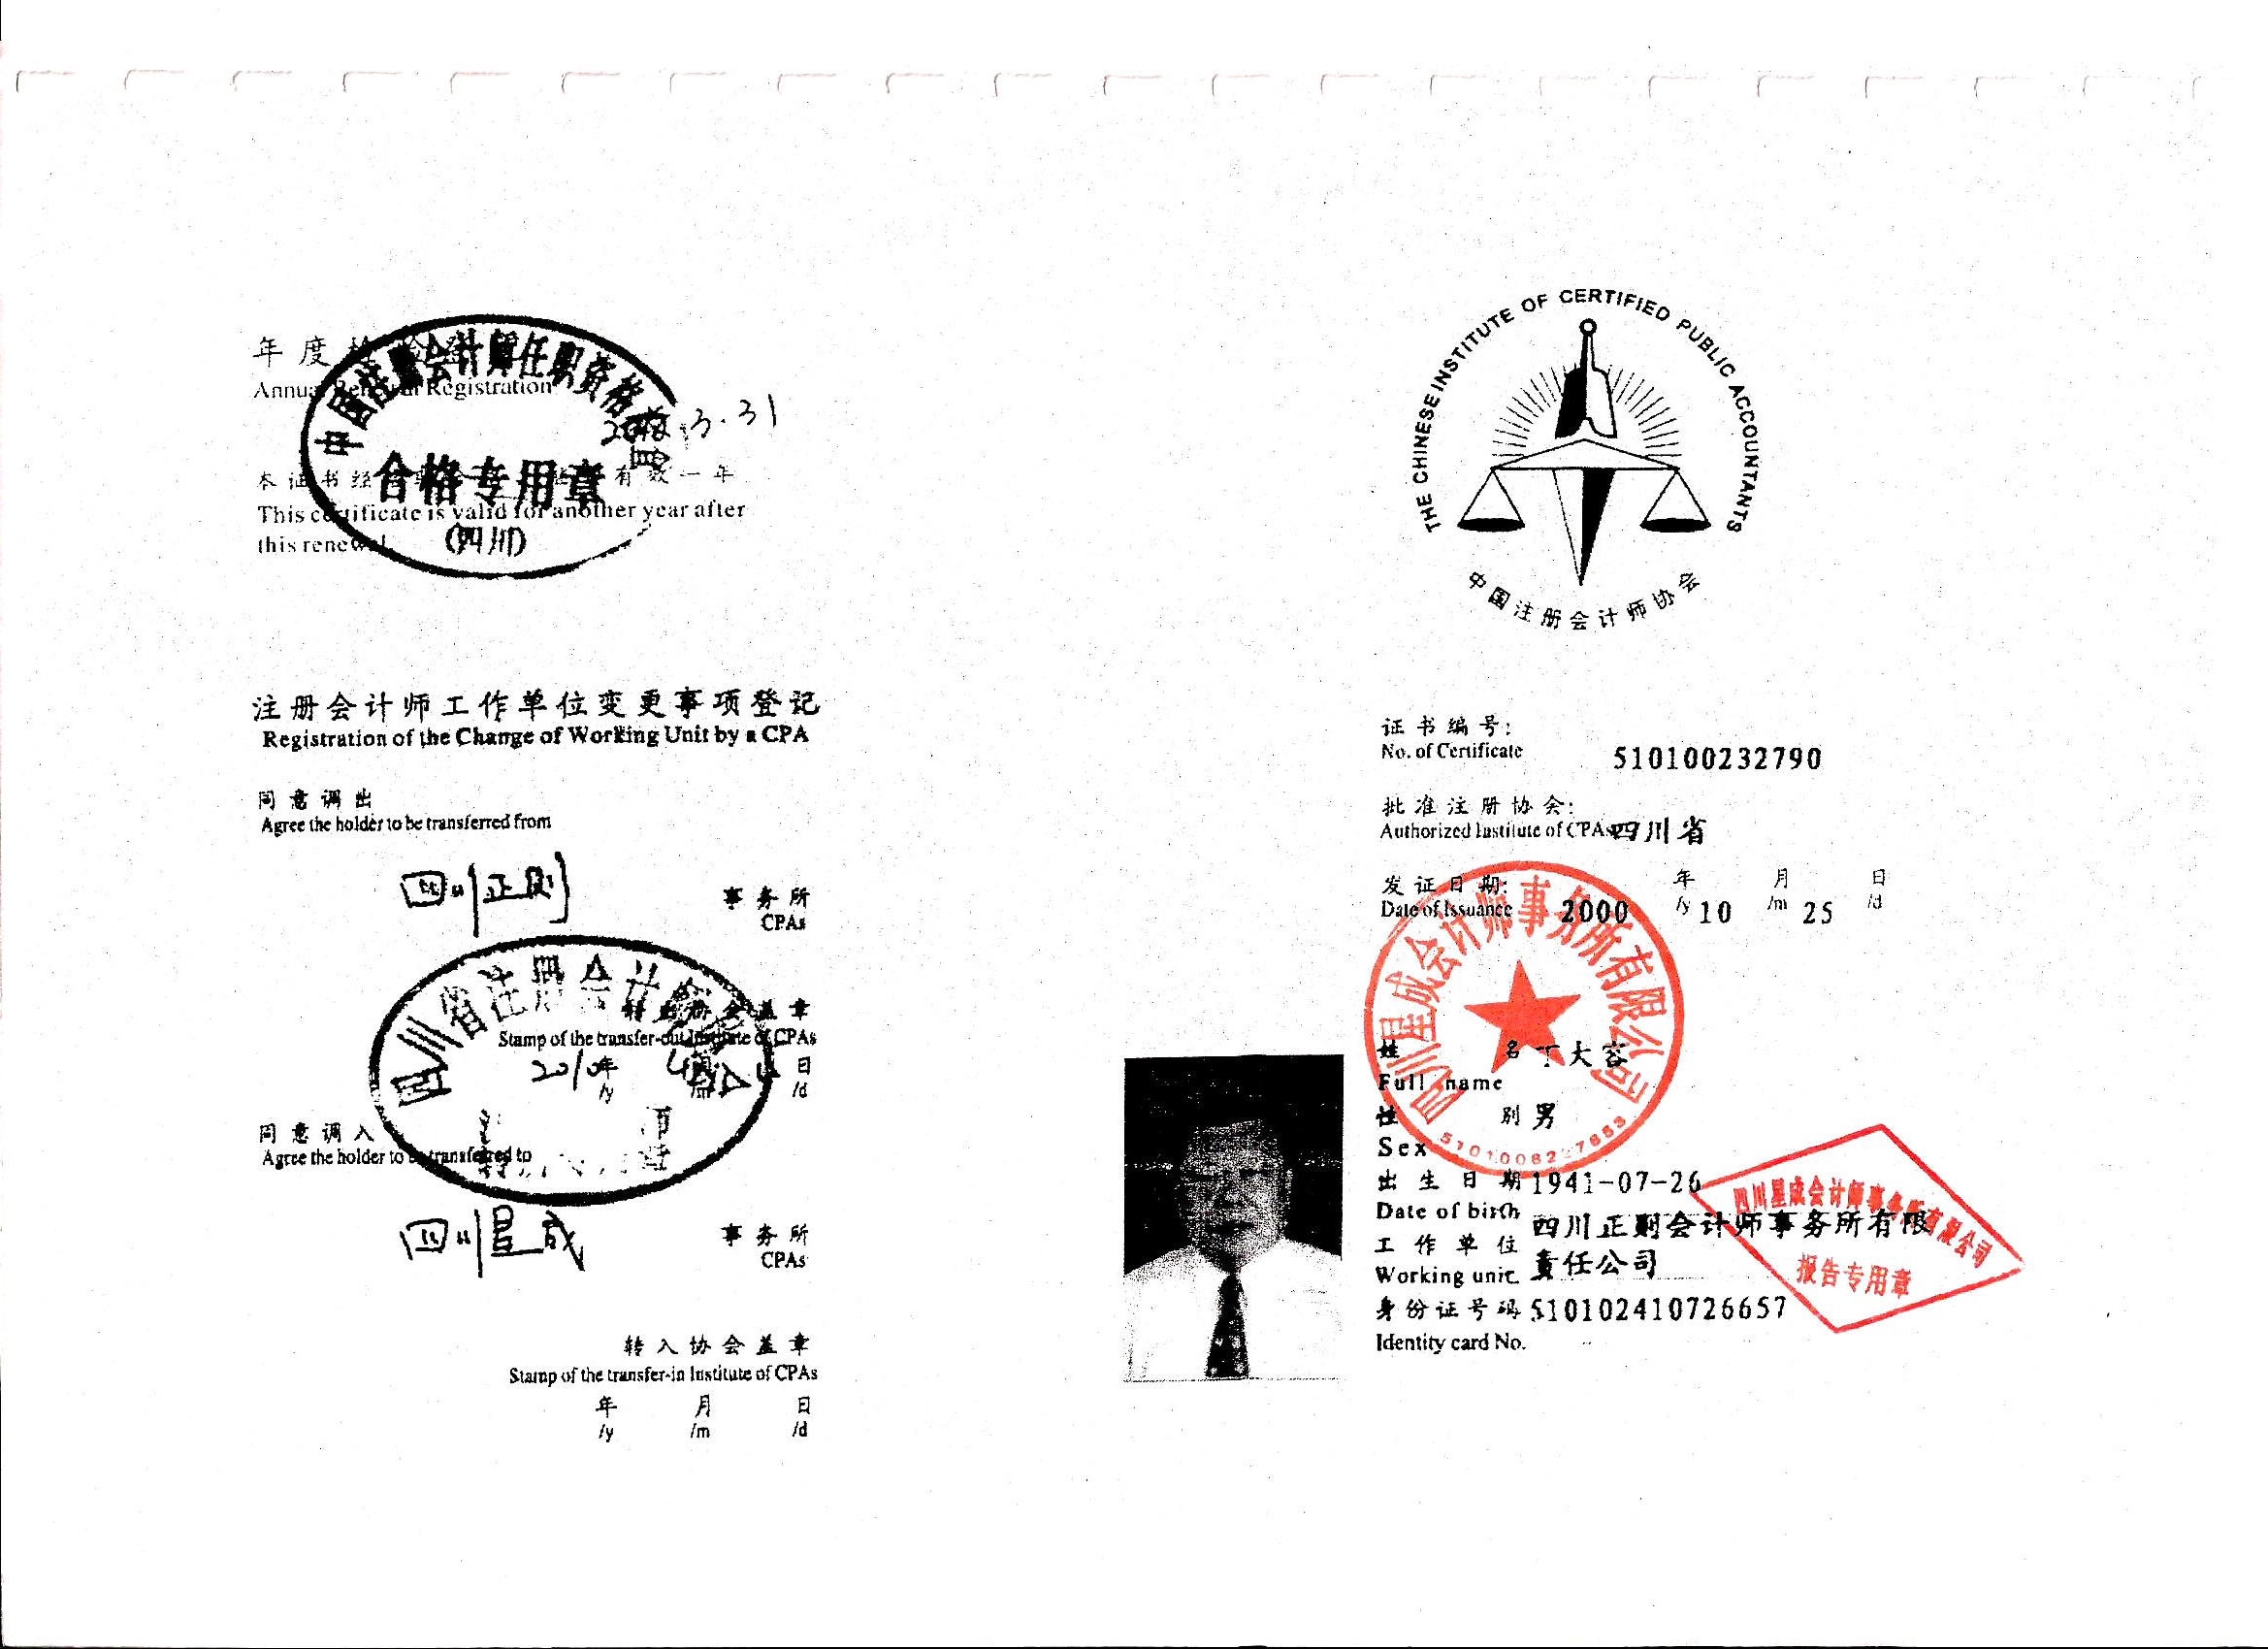 年度检验登记
Annual Renewal Registration
中国注册会计师任职资格检验
合格专用章
(四川)
3.31
本证书经检验合格，继续有效一年
This certificate is valid for another year after
this renewal.
注册会计师工作单位变更事项登记
Registration of the Change of Working Unit by a CPA
同意调出
Agree the holder to be transferred from
四川正则
事务所
CPAs
四川省注册会计师
转出协会盖章
Stamp of the transfer-out Institute of CPAs
2010年 月 日
/y /m /d
同意调入
Agree the holder to be transferred to
四川星成
事务所
CPAs
转入协会盖章
Stamp of the transfer-in Institute of CPAs
年 月 日
/y /m /d
THE CHINESE INSTITUTE OF CERTIFIED PUBLIC ACCOUNTANTS
中国注册会计师协会
证书编号:
No. of Certificate 510100232790
批准注册协会:
Authorized Institute of CPAs 四川省
发证日期: 年 月 日
Date of Issuance 2000 /y 10 /m 25 /d
四川星成会计师事务所有限公司
姓 名 丁大容
Full name
性 别 男
Sex
出生日期 1941-07-26
Date of birth
工作单位 四川正则会计师事务所有限
责任公司
Working unit
身份证号码 510102410726657
Identity card No.
四川星成会计师事务所有限公司
报告专用章